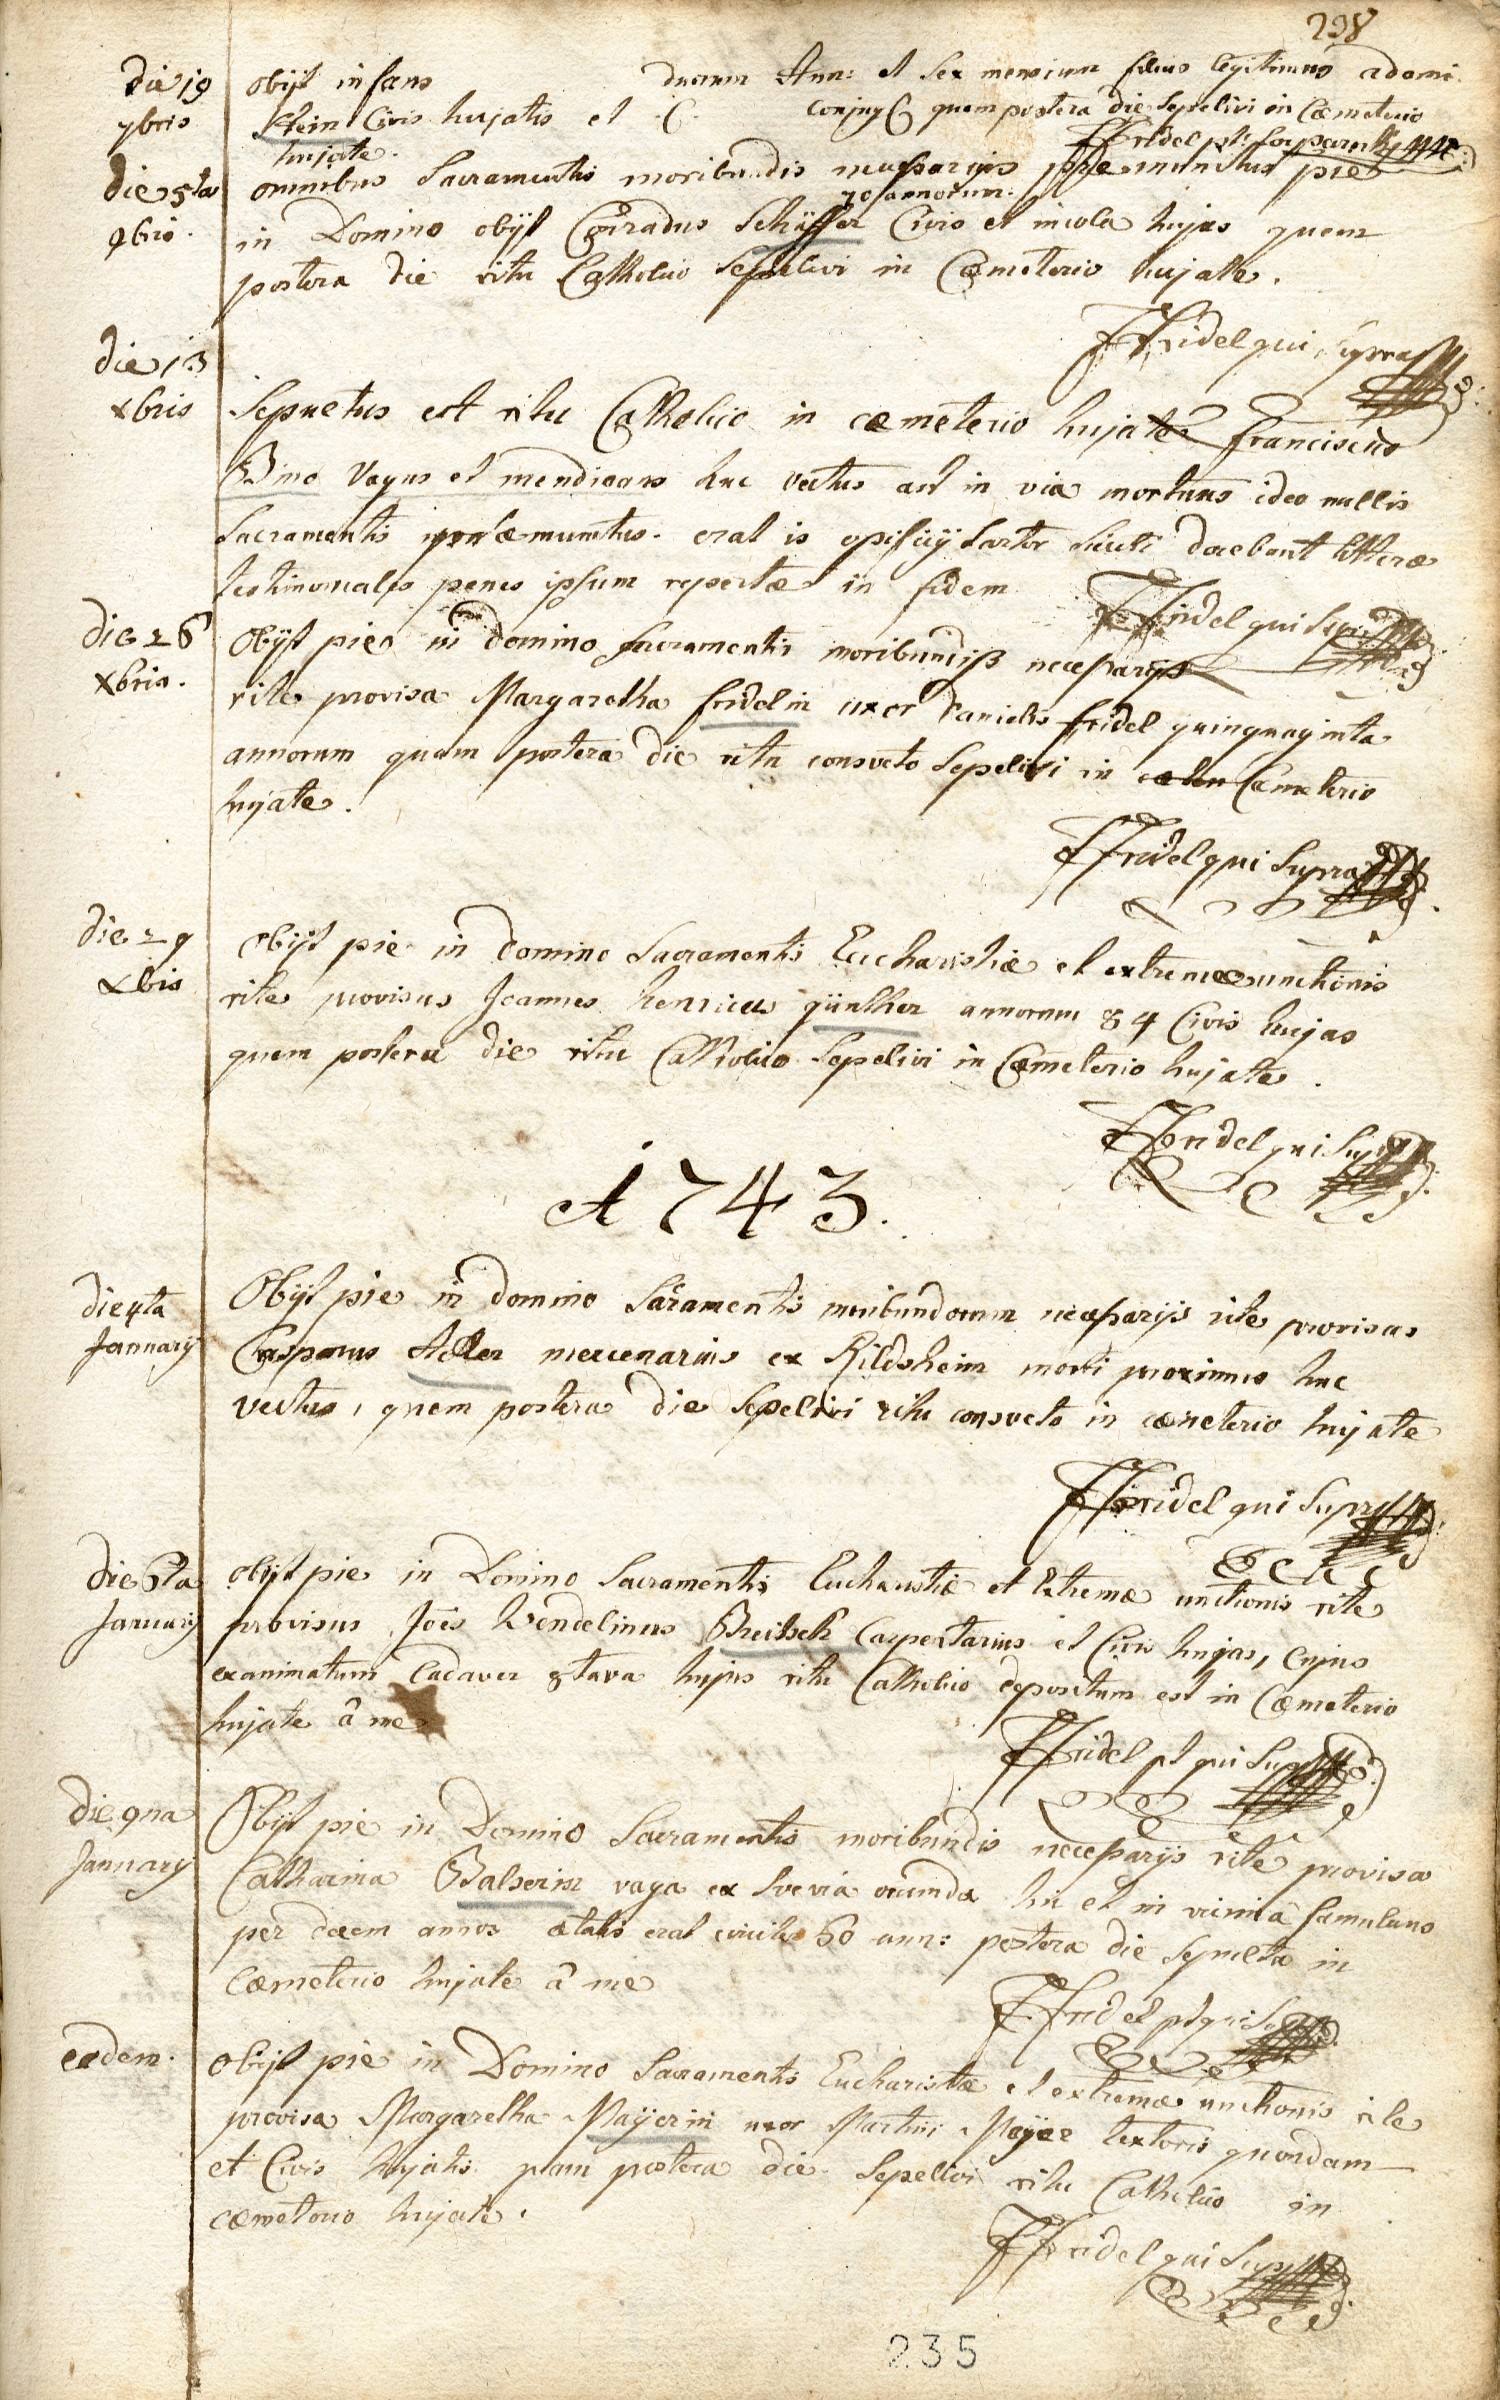 238
die 19
7bris
obijt infans duorum Ann: et sex mensium filius legitimus adami
Klein Civis hujatis et C. conjug quem postera die sepelivi in Cœmeterio
hujate.
FFridel
die 5ta
9bris.
omnibus Sacramentis moribundis necessarijs præmunitus pie
70 annorum.
in Domino obijt Conradus Schäffer Civis et incola hujas quem
postera die ritu Catholico Sepelivi in Cœmeterio hujate.
FFridel qui supra
die 13
xbris
Sepultus est ritu Catholico in cœmeterio hujate Franciscus
Bino Vagus et mendicans huc vectus ast in via mortuus ideo nullis
Sacramentis præmunitus. erat is opificij Sartor sicuti docebant litteræ
testimoniales penes ipsum repertæ in fidem
FFridel qui Supra
die 26
xbris.
Obijt pie in domino sacramentis moribundis necessarijs
rite provisa Margaretha fridelin uxor Danielis fridel quinquaginta
annorum quam postera die ritu consveto Sepelivi in Cœmeterio
hujate.
FFridel qui Supra
die 29
xbis
obijt pie in domino Sacramentis Eucharistiæ et extremæ unctionis
rite provisus Joannes henricus günther annorum 84 Civis hujas
quem postera die ritu Catholico Sepelivi in Cœmeterio hujate.
FFridel qui Supra
A 1743.
die 4ta
January
Obijt pie in domino Sacramentis moribundorum necessarijs rite provisus
Casparus Adler mercenarius ex Rildsheim morti proximus huc
vectus, quem postera die Sepelivi ritu consveto in cœmeterio hujate
FFridel qui Supra
die 6ta
January
obijt pie in Domino Sacramentis Eucharistiæ et Extremæ unctionis rite
provisus Joës Wendelinus Breitsch Carpentarius et Civis hujas, cujus
exanimatum Cadaver 8tava hujus ritu Catholico depositum est in Cœmeterio
hujate â me
FFridel pt qui Supra
die 9na
January
Obijt pie in Domino Sacramentis moribundis necessarijs rite provisa
Catharina Balserin vaga ex Svevia oriunda hic et in vicinia famulans
per decem annos ætatis erat circiter 60 ann: postera die sepulta in
Cœmeterio hujate â me
FFridel pt qui Supra
eadem.
obijt pie in Domino Sacramentis Eucharistiæ et extremæ unctionis rite
provisa Margaretha Mayerin uxor Martini Mayer textoris quondam
et Civis hujatis quam postera die Sepelivi ritu Catholico in
cœmeterio hujate.
FFridel qui Supra
235